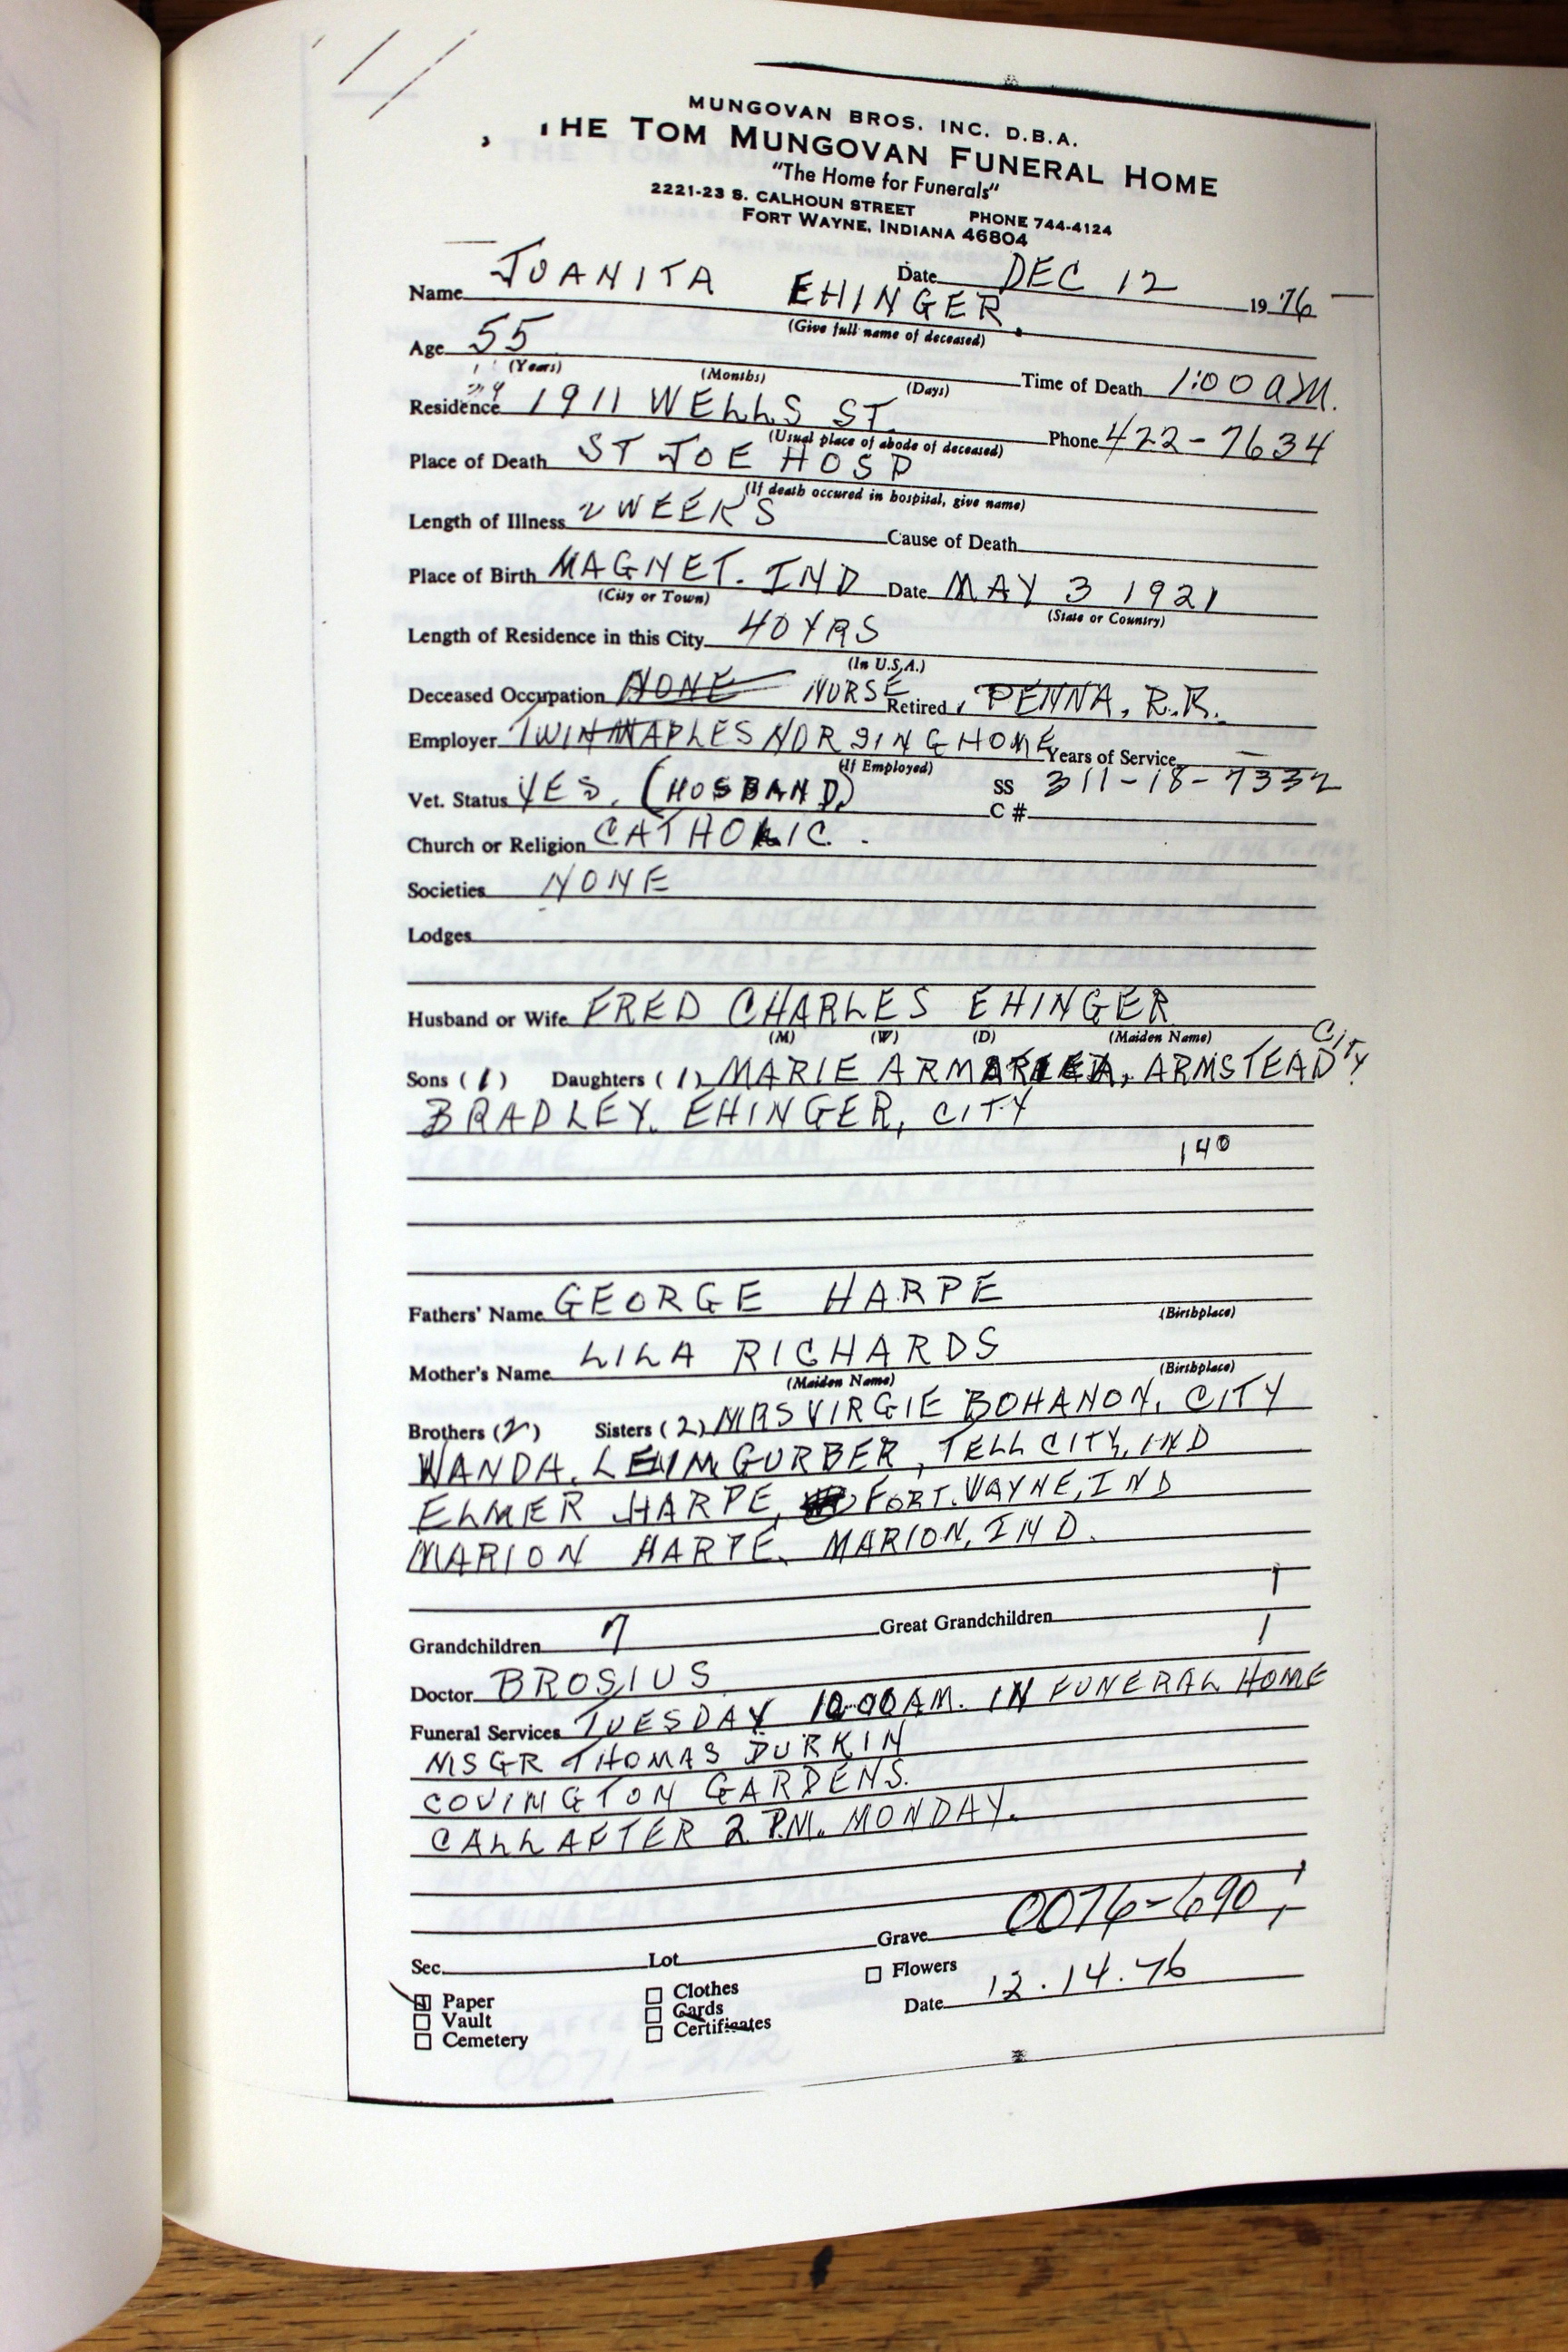 MUNGOVAN BROS. INC. D.B.A.
THE TOM MUNGOVAN FUNERAL HOME
"The Home for Funerals"
2221-23 S. CALHOUN STREET PHONE 744-4124
FORT WAYNE, INDIANA 46804
Name JUANITA EHINGER Date DEC 12 1976
(Give full name of deceased)
Age 55 Time of Death 1:00 AM.
(Years) (Months) (Days)
Residence 1911 WELLS ST. Phone 422-7634
(Usual place of abode of deceased)
Place of Death ST JOE HOSP
(If death occured in hospital, give name)
Length of Illness 2 WEEKS Cause of Death
Place of Birth MAGNET. IND Date MAY 3 1921
(City or Town) (State or Country)
Length of Residence in this City 40 YRS
(In U.S.A.)
Deceased Occupation NONE NURSE Retired PENNA, R.R.
Employer TWIN MAPLES NURSING HOME Years of Service —
(If Employed)
Vet. Status YES. (HUSBAND) SS 311-18-7332
C #
Church or Religion CATHOLIC.
Societies NONE
Lodges
Husband or Wife FRED CHARLES EHINGER
(M) (W) (D) (Maiden Name)
Sons (1) Daughters (1) MARIE ARMSTEAD CITY
BRADLEY. EHINGER, CITY
140
Fathers' Name GEORGE HARPE
(Birthplace)
Mother's Name LILA RICHARDS
(Maiden Name) (Birthplace)
Brothers (2) Sisters (2) MRS VIRGIE BOHANON, CITY
WANDA, TELL CITY, IND
ELMER HARPE, FORT. WAYNE, IND
MARION HARPE, MARION, IND.
Grandchildren 7 Great Grandchildren
Doctor BROSIUS
Funeral Services TUESDAY 10:00 AM. IN FUNERAL HOME
MSGR THOMAS DURKIN
COVINGTON GARDENS.
CALL AFTER 2 P.M. MONDAY.
0076-690
Sec. Lot Grave
Paper Clothes Flowers
Vault Cards Date 12.14.76
Cemetery Certificates